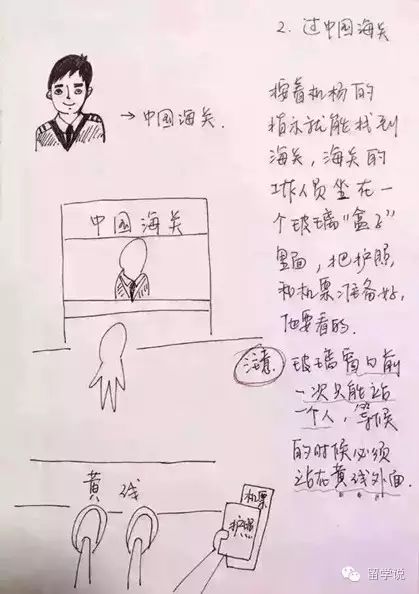 2. 过中国海关
→中国海关.
按着机场的
指示就能找到
海关，海关的
工作人员坐在一
个玻璃“盒子”
里面，把护照
和机票准备好，
他要看的.
中国海关
注意 玻璃窗口前
一次只能站
一个人，等候
的时候必须
站在黄线外面.
黄 线
机票
护照
留学说